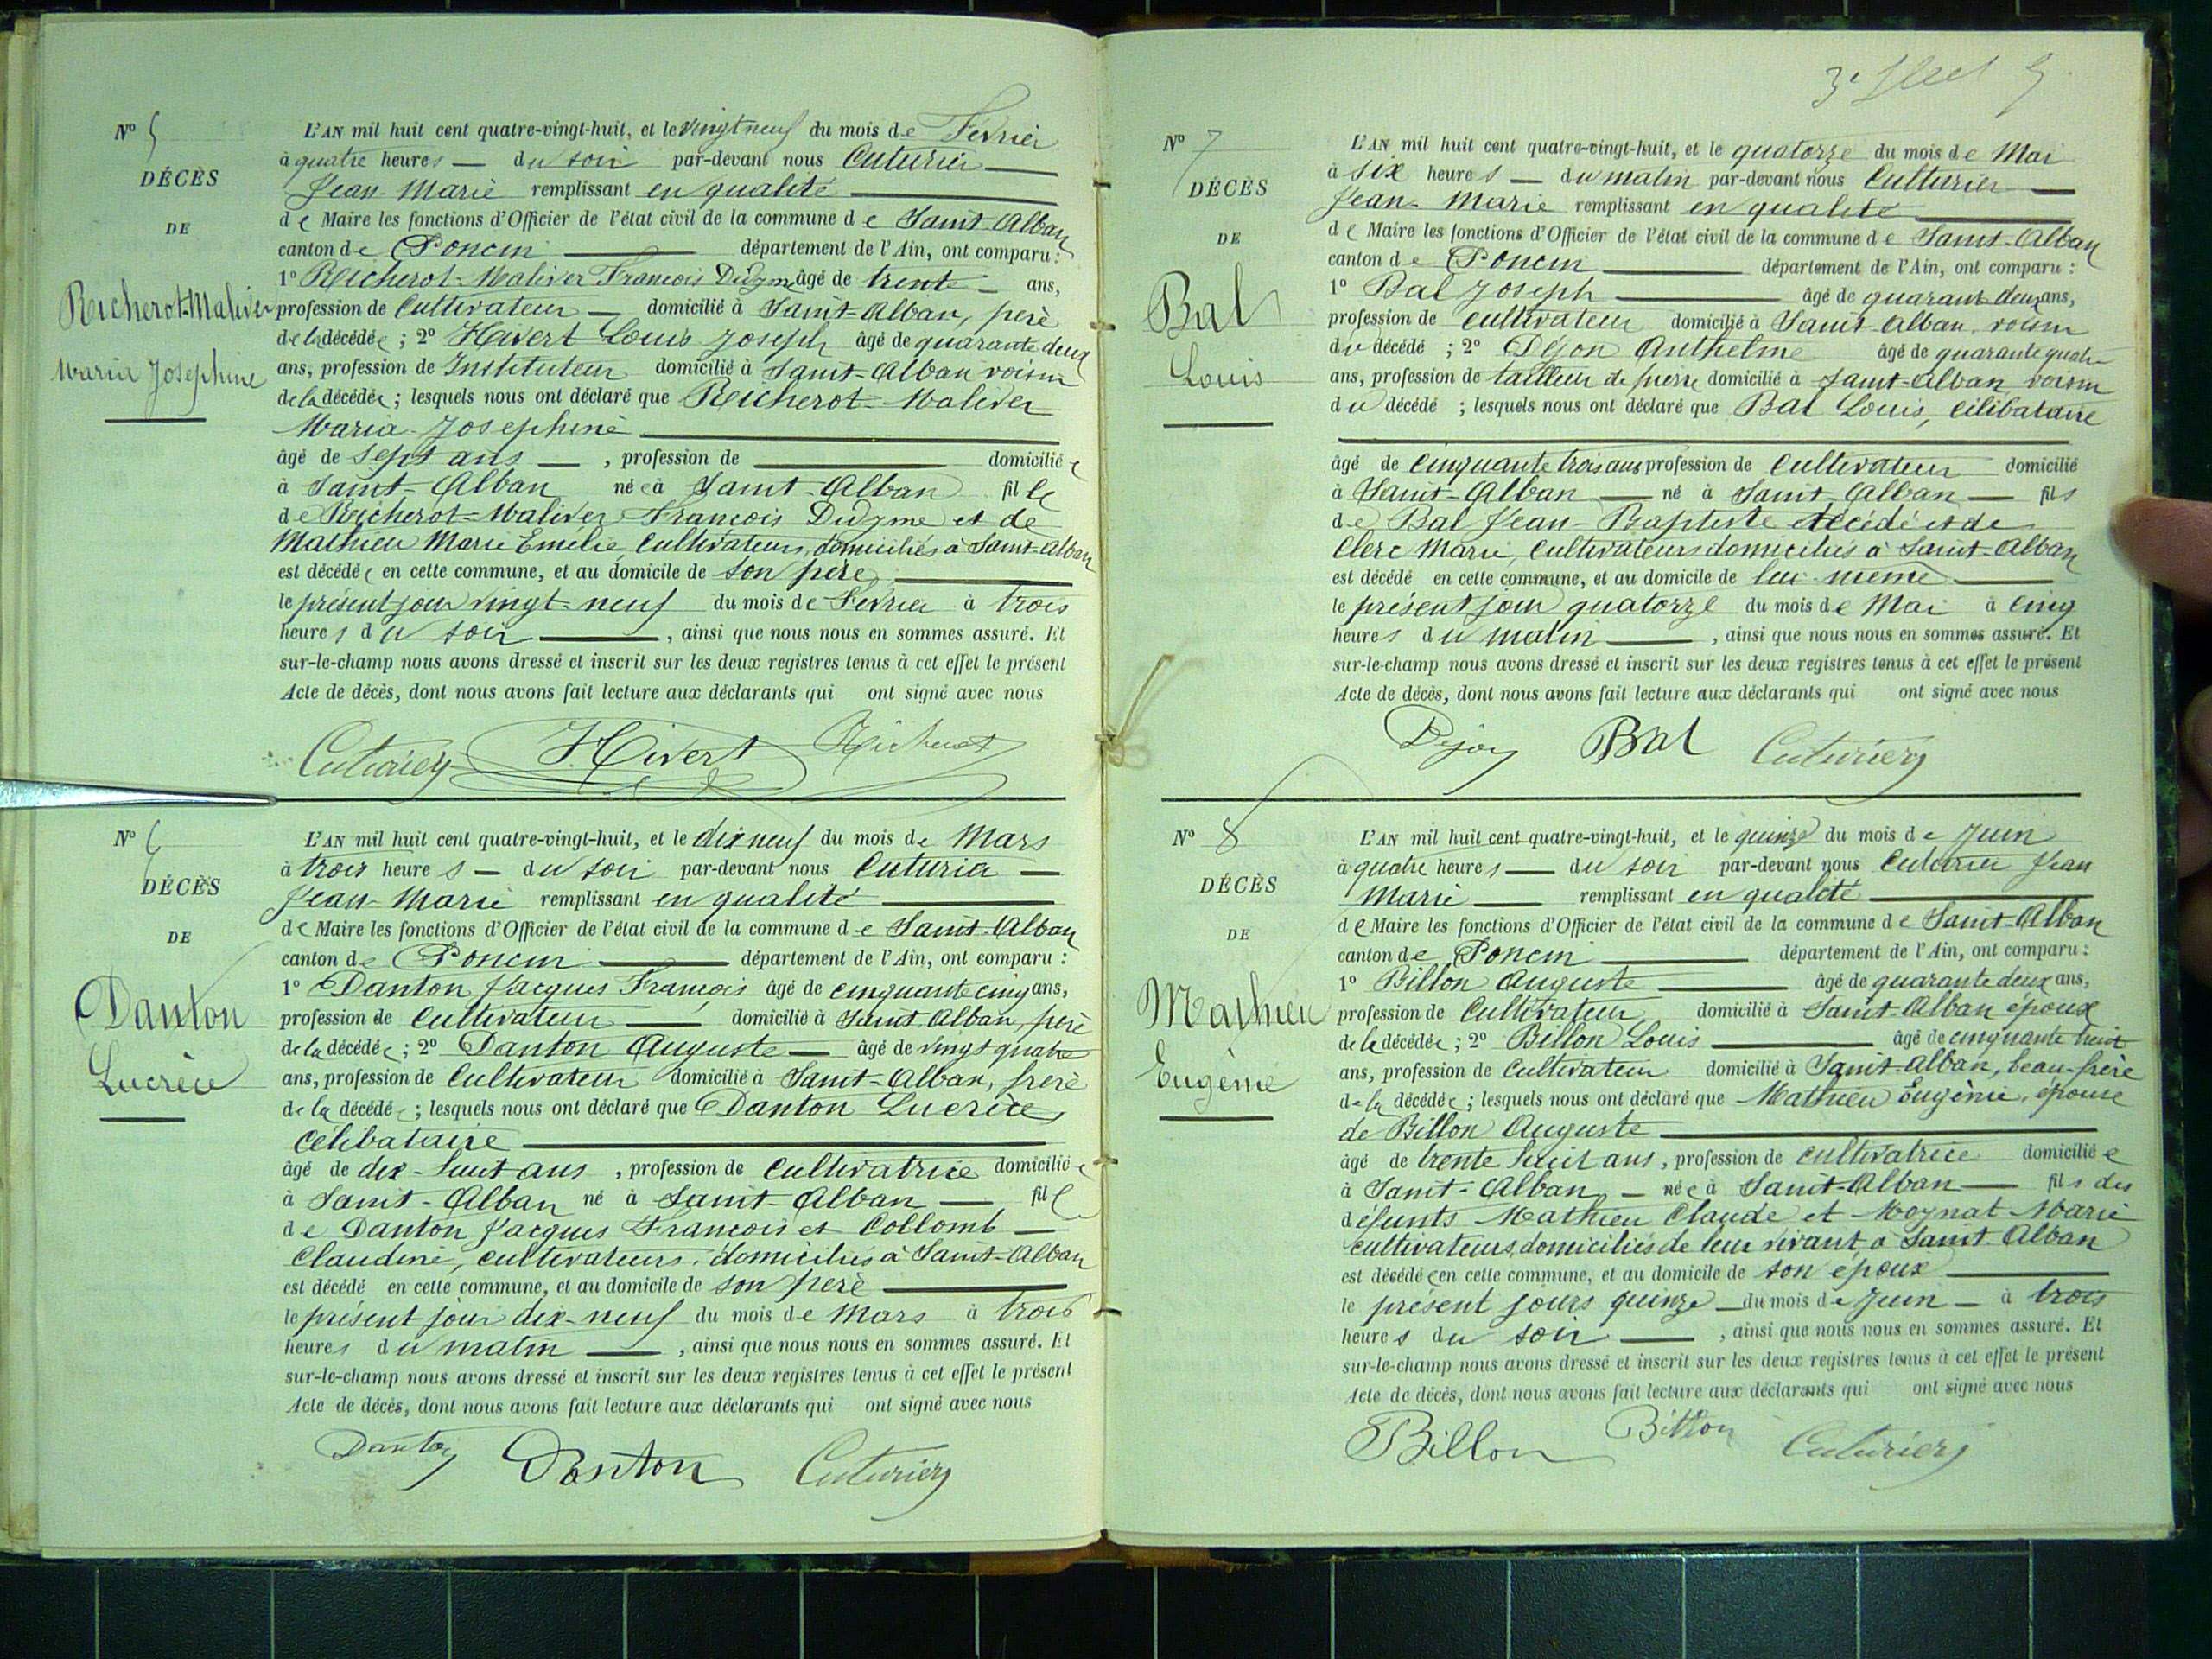 N° 5
DÉCÈS
DE
Richerot-Maliver
Maria Joséphine
L'AN mil huit cent quatre-vingt-huit, et le vingt neuf du mois de Fevrier
à quatre heures — du soir par-devant nous Cuturier —
Jean-Marie remplissant en qualité —
de Maire les fonctions d'Officier de l'état civil de la commune de Saint-Alban
canton de Poncin — département de l'Ain, ont comparu :
1° Richerot-Maliver François Didyme âgé de trente — ans,
profession de Cultivateur — domicilié à Saint-Alban, père
de la décédée ; 2° Hivert Louis Joseph âgé de quarante deux
ans, profession de Instituteur domicilié à Saint-Alban voisin
de la décédée ; lesquels nous ont déclaré que Richerot-Maliver
Maria-Joséphine —
âgé de sept ans — , profession de — domiciliée
à Saint-Alban née à Saint-Alban fille
de Richerot-Maliver François Didyme et de
Mathieu Marie Emélie, Cultivateurs, domiciliés à Saint-Alban
est décédée en cette commune, et au domicile de son père —
le présent jour vingt-neuf du mois de Fevrier à trois
heures du soir — , ainsi que nous nous en sommes assuré. Et
sur-le-champ nous avons dressé et inscrit sur les deux registres tenus à cet effet le présent
Acte de décès, dont nous avons fait lecture aux déclarants qui ont signé avec nous
Cuturier Hivert Richerot
N° 6
DÉCÈS
DE
Danton
Lucrèce
L'AN mil huit cent quatre-vingt-huit, et le dix neuf du mois de Mars
à trois heures — du soir par-devant nous Cuturier —
Jean-Marie remplissant en qualité —
de Maire les fonctions d'Officier de l'état civil de la commune de Saint-Alban
canton de Poncin — département de l'Ain, ont comparu :
1° Danton Jacques François âgé de cinquante cinq ans,
profession de Cultivateur — domicilié à Saint-Alban, père
de la décédée ; 2° Danton Auguste — âgé de vingt quatre
ans, profession de Cultivateur domicilié à Saint-Alban, frère
de la décédée ; lesquels nous ont déclaré que Danton Lucrèce,
Célibataire —
âgé de dix-huit ans , profession de Cultivatrice domiciliée
à Saint-Alban né à Saint-Alban — fille
de Danton Jacques François et Collomb —
Claudine, cultivateurs, domiciliés à Saint-Alban
est décédé en cette commune, et au domicile de son père —
le présent jour dix-neuf du mois de Mars à trois
heures du matin — , ainsi que nous nous en sommes assuré. Et
sur-le-champ nous avons dressé et inscrit sur les deux registres tenus à cet effet le présent
Acte de décès, dont nous avons fait lecture aux déclarants qui ont signé avec nous
Danton Danton Cuturier
N° 7
DÉCÈS
DE
Bal
Louis
L'AN mil huit cent quatre-vingt-huit, et le quatorze du mois de Mai
à six heures — du matin par-devant nous Cuturier —
Jean-Marie remplissant en qualité —
de Maire les fonctions d'Officier de l'état civil de la commune de Saint-Alban
canton de Poncin — département de l'Ain, ont comparu :
1° Bal Joseph — âgé de quarante deux ans,
profession de Cultivateur domicilié à Saint-Alban voisin
du décédé ; 2° Déjon Anthelme âgé de quarante quatre
ans, profession de tailleur de pierre domicilié à Saint-Alban voisin
du décédé ; lesquels nous ont déclaré que Bal Louis, Célibataire
âgé de Cinquante trois ans profession de Cultivateur domicilié
à Saint-Alban — né à Saint-Alban — fils
de Bal Jean-Baptiste décédé et de
Clerc Marie, Cultivateurs domiciliés à Saint-Alban
est décédé en cette commune, et au domicile de lui-même —
le présent jour quatorze du mois de Mai à cinq
heures du matin — , ainsi que nous nous en sommes assuré. Et
sur-le-champ nous avons dressé et inscrit sur les deux registres tenus à cet effet le présent
Acte de décès, dont nous avons fait lecture aux déclarants qui ont signé avec nous
Dejon Bal Cuturier
N° 8
DÉCÈS
DE
Mathieu
Eugénie
L'AN mil huit cent quatre-vingt-huit, et le quinze du mois de Juin
à quatre heures — du soir par-devant nous Cuturier Jean
Marie — remplissant en qualité —
de Maire les fonctions d'Officier de l'état civil de la commune de Saint-Alban
canton de Poncin — département de l'Ain, ont comparu :
1° Billon Auguste — âgé de quarante deux ans,
profession de Cultivateur domicilié à Saint-Alban époux
de la décédée ; 2° Billon Louis — âgé de cinquante huit
ans, profession de Cultivateur domicilié à Saint-Alban, beau-frère
de la décédée ; lesquels nous ont déclaré que Mathieu Eugénie, épouse
de Billon Auguste —
âgé de trente huit ans, profession de cultivatrice domiciliée
à Saint-Alban — née à Saint-Alban — fils des
défunts Mathieu Claude et Moynat Marie
cultivateurs, domiciliés de leur vivant à Saint-Alban
est décédée en cette commune, et au domicile de son époux —
le présent jours quinze — du mois de Juin — à trois
heures du soir — , ainsi que nous nous en sommes assuré. Et
sur-le-champ nous avons dressé et inscrit sur les deux registres tenus à cet effet le présent
Acte de décès, dont nous avons fait lecture aux déclarants qui ont signé avec nous
Billon Billon Cuturier